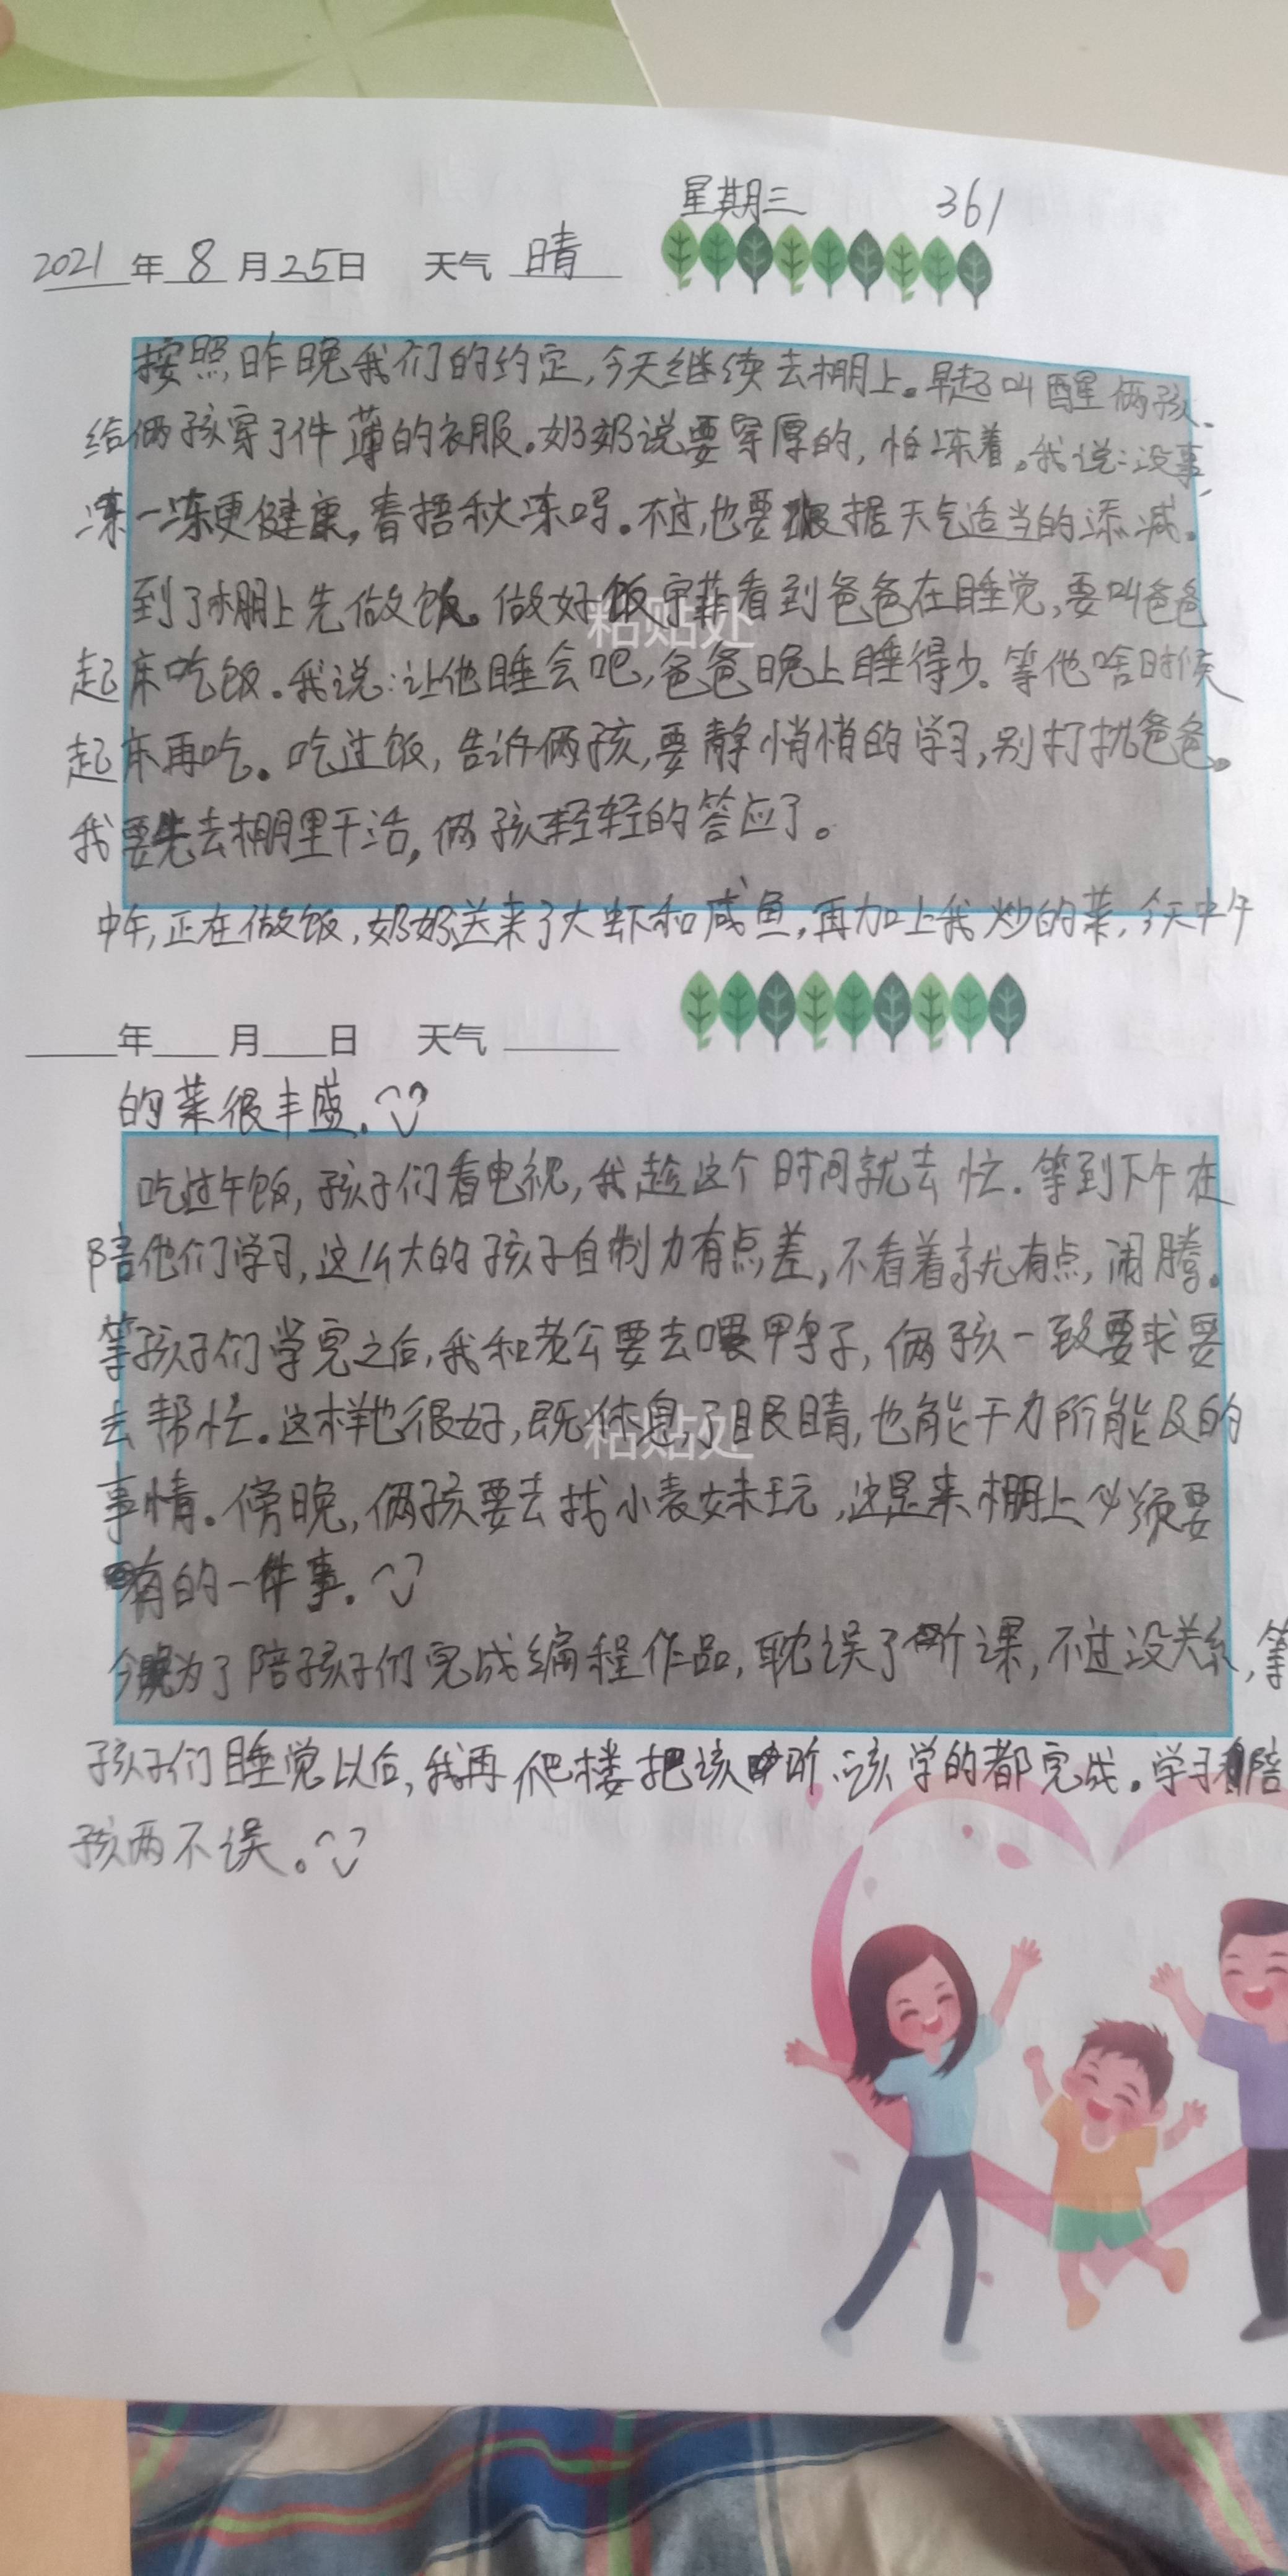 星期三 361
2021年8月25日 天气 晴
按照昨晚我们的约定,今天继续去棚上。早起叫醒俩孩、
给俩孩穿了件薄的衣服。奶奶说要穿厚的,怕冻着。我说:没事,
冻一冻更健康,春捂秋冻吗。不过,也要根据天气适当的添减。
到了棚上先做饭。做好饭看到爸爸在睡觉,要叫爸爸
粘贴处
起床吃饭。我说:让他睡会吧,爸爸晚上睡得少。等他啥时候
起床再吃。吃过饭,告诉俩孩,要静悄悄的学习,别打扰爸爸。
我要先去棚里干活,俩孩轻轻的答应了。
中午,正在做饭,奶奶送来了大虾和咸鱼,再加上我炒的菜,今天中午
年 月 日 天气
的菜很丰盛。
吃过午饭,孩子们看电视,我趁这个时间就去忙.等到下午在
陪他们学习,这么大的孩子自制力有点差,不看着就有点,闹腾。
等孩子们学完之后,我和老公要去喂鸭子,俩孩一致要求要
去帮忙。这样也很好,既休息了眼睛,也能干力所能及的
粘贴处
事情。傍晚,俩孩要去找小表妹玩,这是来棚上必须要
有的一件事.
今晚为了陪孩子们完成编程作品,耽误了听课,不过没关系,等
孩子们睡觉以后,我再爬楼把该听,该学的都完成.学习和陪
孩两不误。